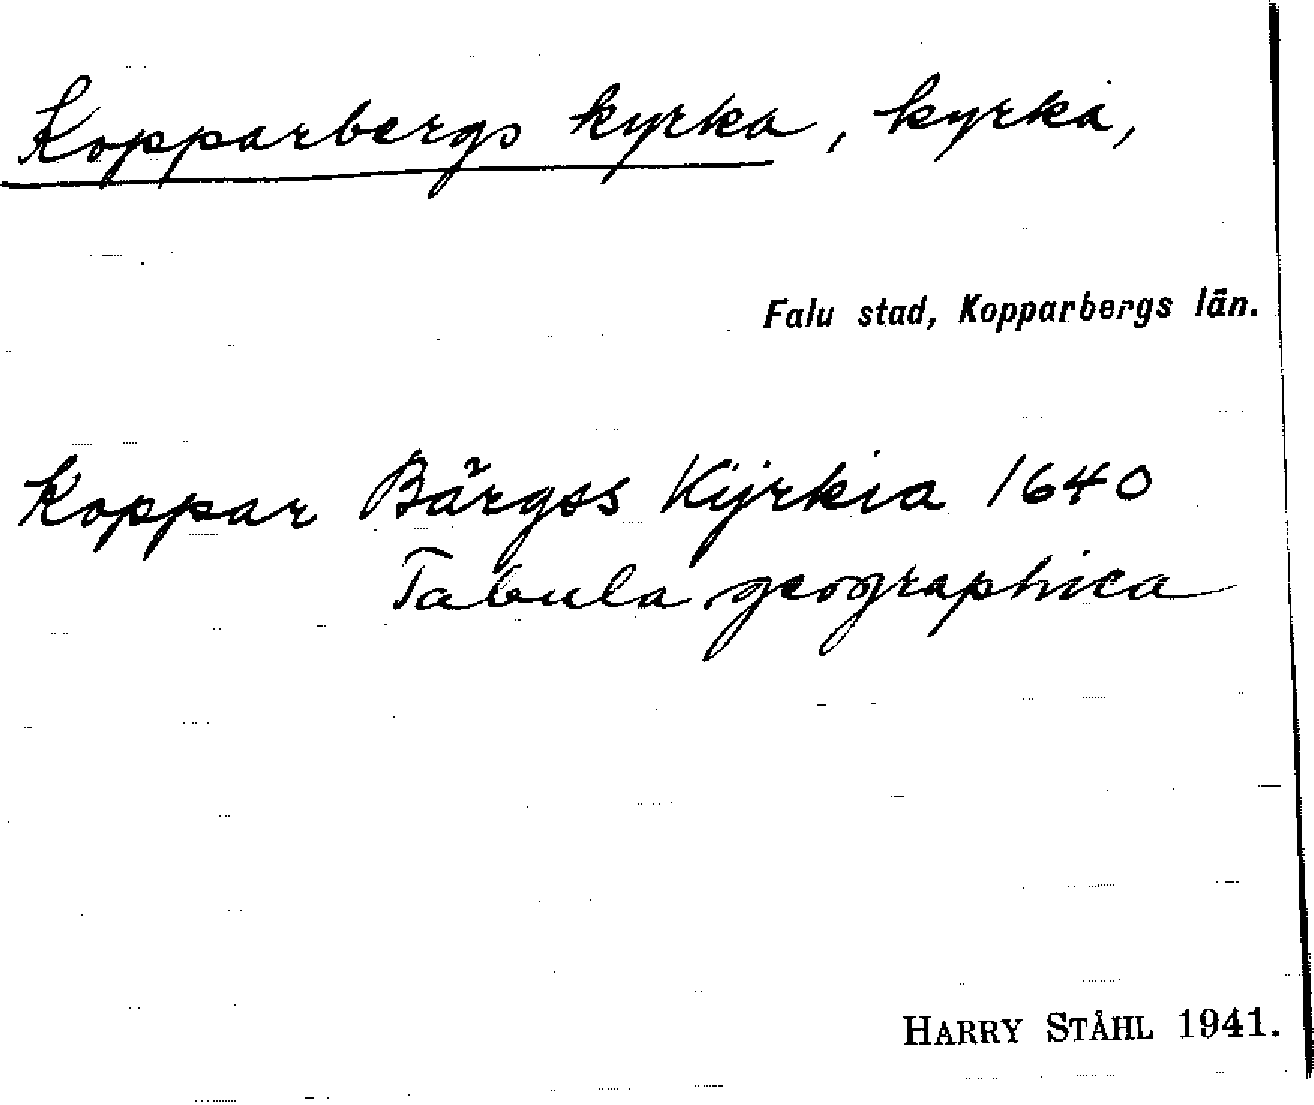 Kopparbergs kyrka, kyrka,
Falu stad, Kopparbergs län.
Koppar Bärgss Kijrkia 1640
Tabula geographica
HARRY STÅHL 1941.